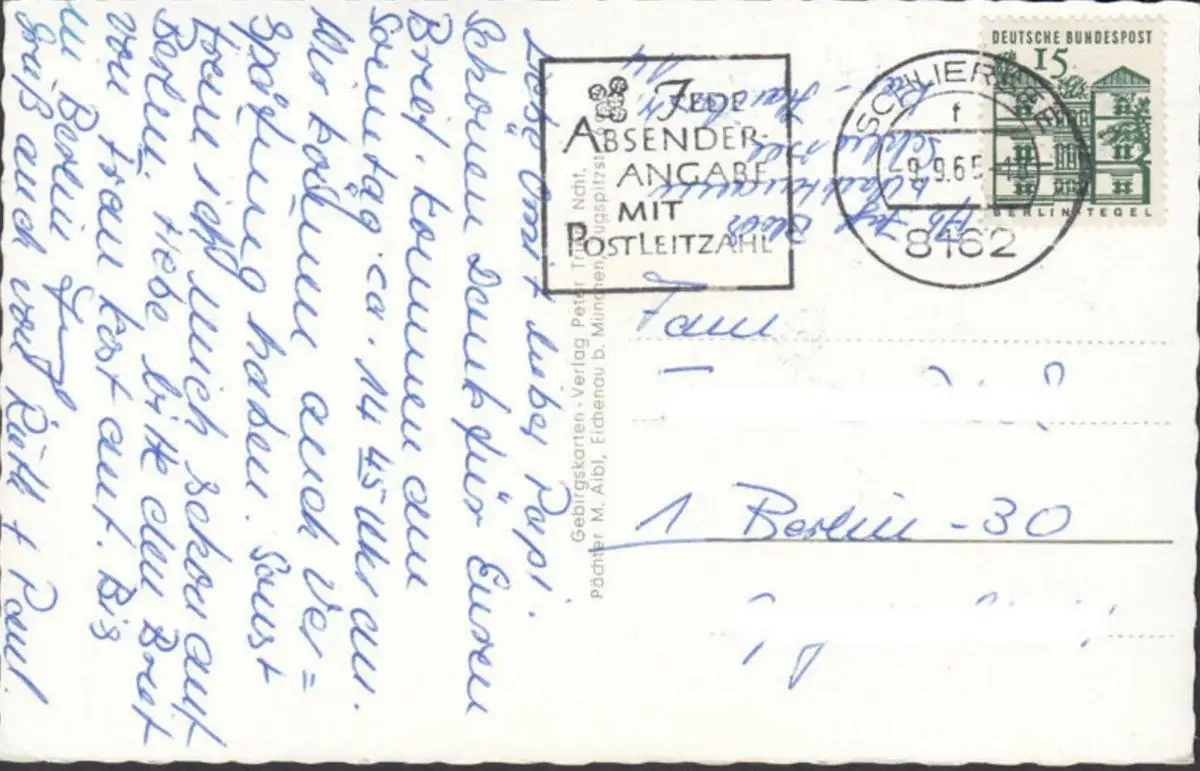 Liebe Omi lieber Papi.
Schönen Dank für Euren
Brief. Kommen am
Sonntag ca. 14 45 Uhr an.
Wir können auch Ver=
spätung haben. Sonst
freue ich mich schon auf
Berlin. Hebe bitte den Brief
von Frau Kost auf. Bis
in Berlin
Gruß auch von Ruth + Paul.
JEDE
ABSENDER-
ANGABE
MIT
POSTLEITZAHL
SCHLIERSEE
f
-9.9.65-
8162
DEUTSCHE BUNDESPOST
15
BERLIN-TEGEL
Gebirgskarten-Verlag Peter Ncht.
Pächter M. Aibl, Eichenau b. München, Zugspitzst
Schliersee
Fam
1 Berlin-30